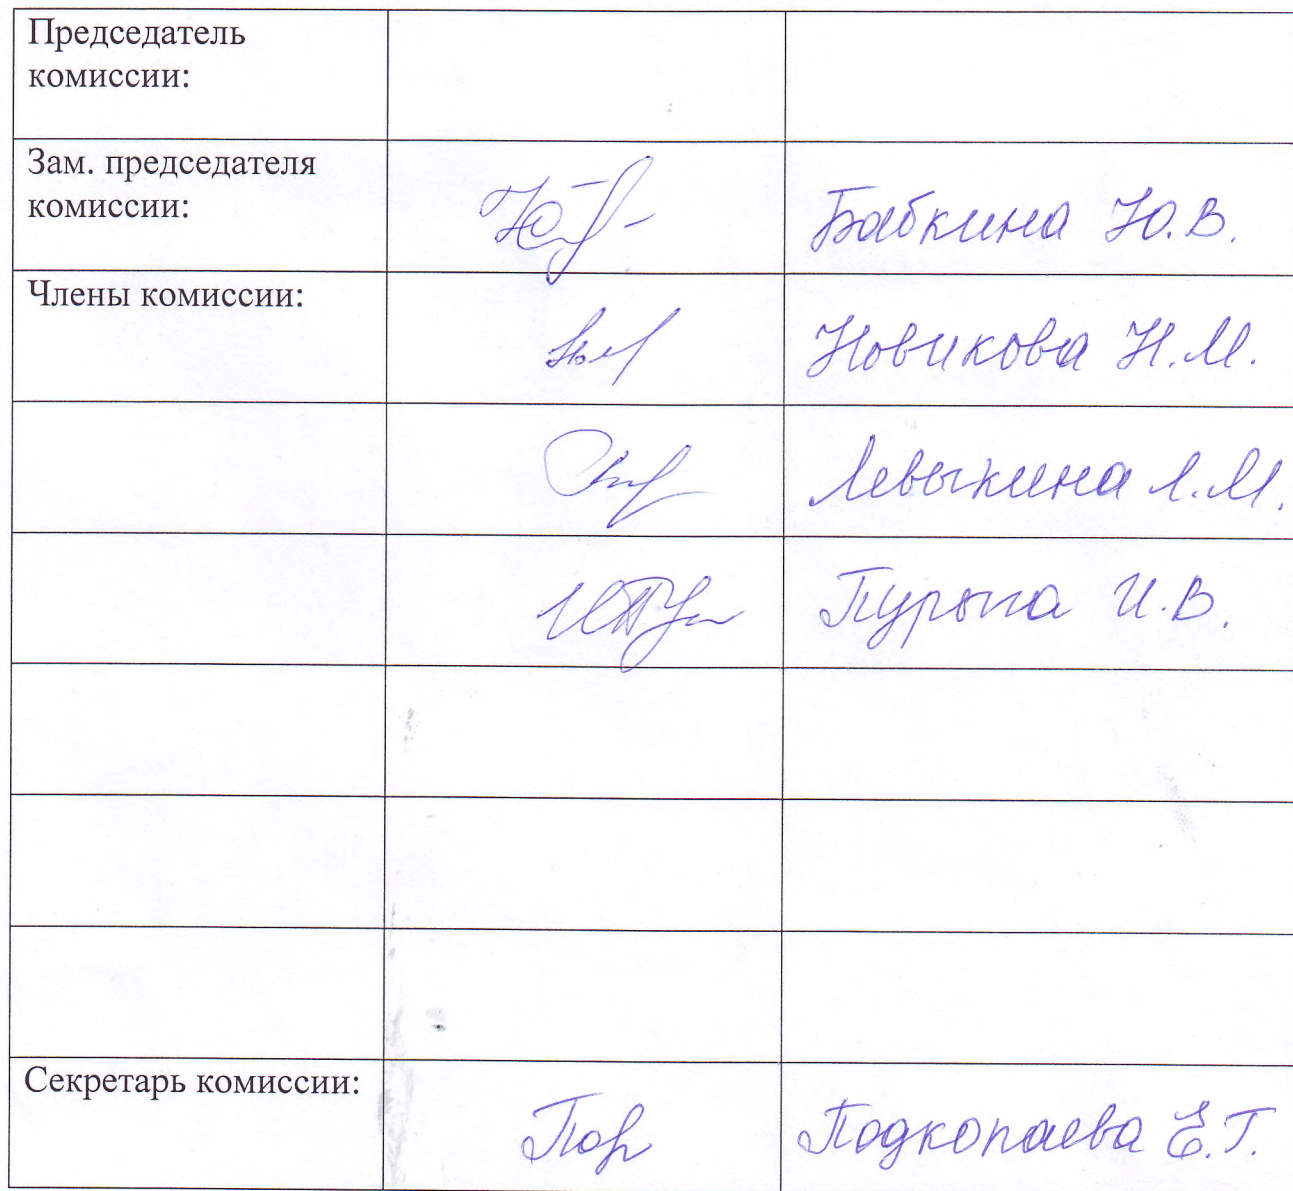 Председатель
комиссии:
Зам. председателя
комиссии:
Бабкина Ю.В.
Члены комиссии:
Новикова Н.М.
Левыкина Л.М.
И.В.
Секретарь комиссии:
Подкопаева Е.Г.